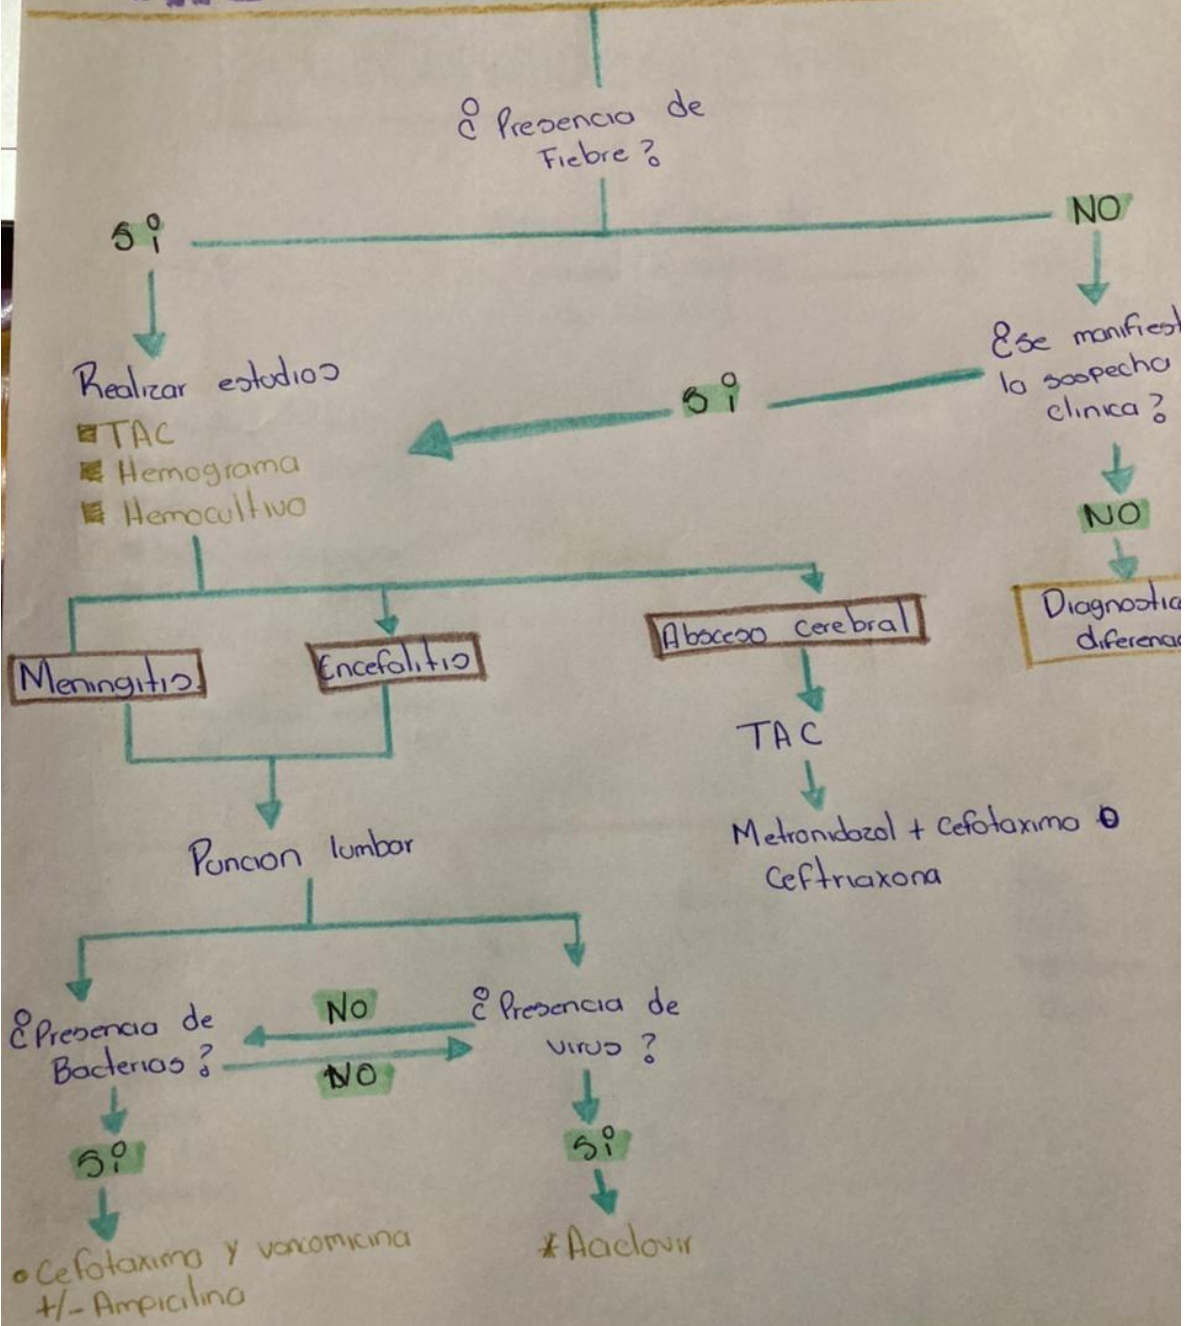 ¿Presencia de
Fiebre?
Sí
NO
Realizar estudios
TAC
Hemograma
Hemocultivo
Sí
¿se manifiest
la sospecha
clinica?
NO
Diagnostic
diferenc
Meningitis
Encefalitis
Absceso cerebral
TAC
Metronidazol + Cefotaxima o
Ceftriaxona
Puncion lumbar
¿Presencia de
Bacterias?
No
NO
¿Presencia de
virus?
Sí
Sí
• Cefotaxima y vancomicina
+/- Ampicilina
* Aaclovir